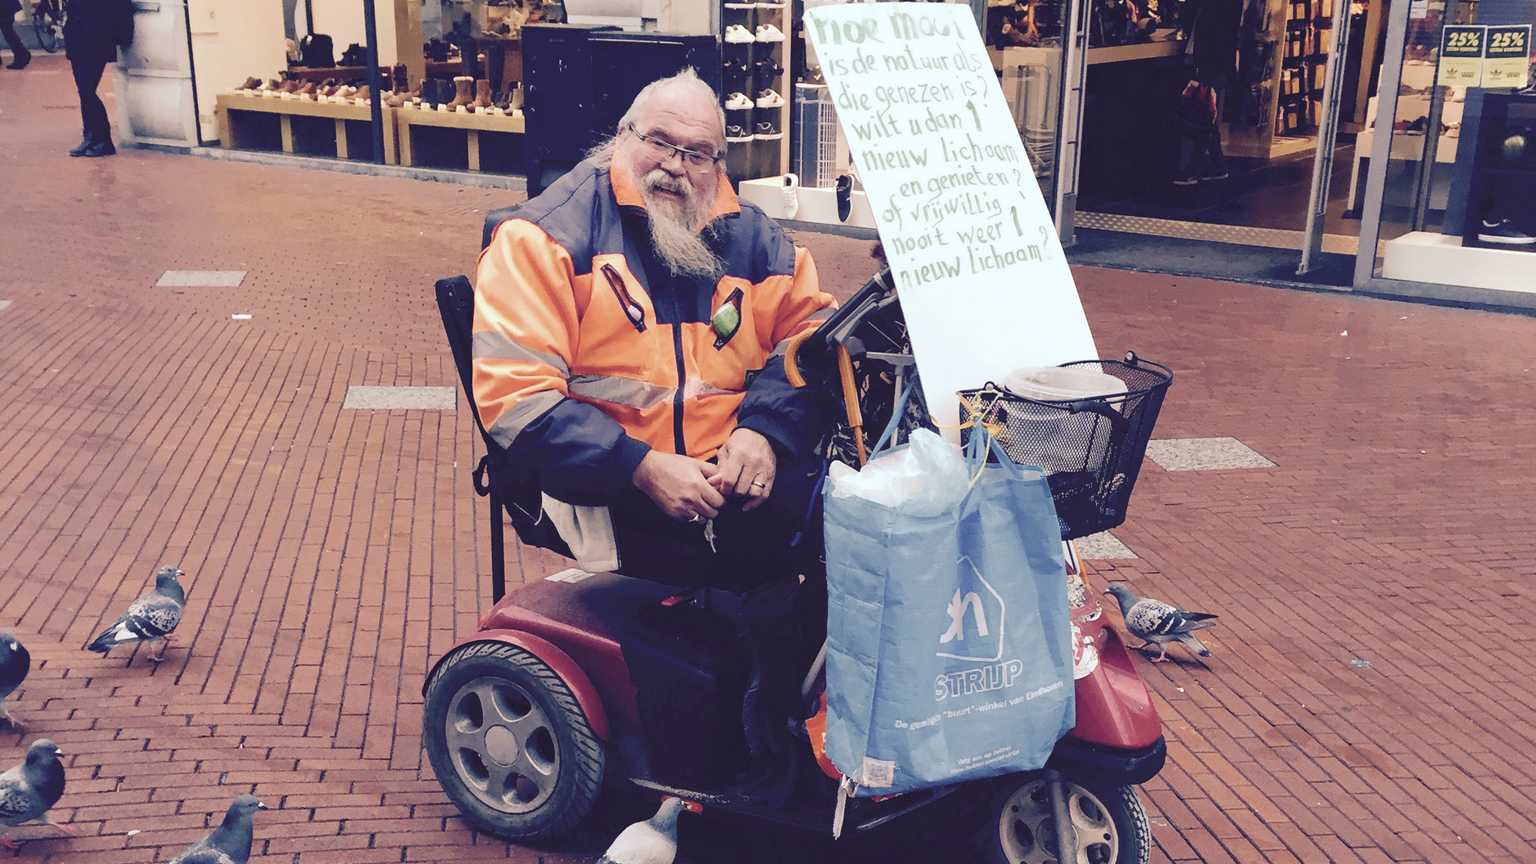 hoe mooi
is de natuur als
die genezen is?
wilt u dan 1
nieuw lichaam
en genieten?
of vrijwillig
nooit weer 1
nieuw lichaam?
25% 25%
STRIJP
De gezelligste "buurt"-winkel van Eindhoven